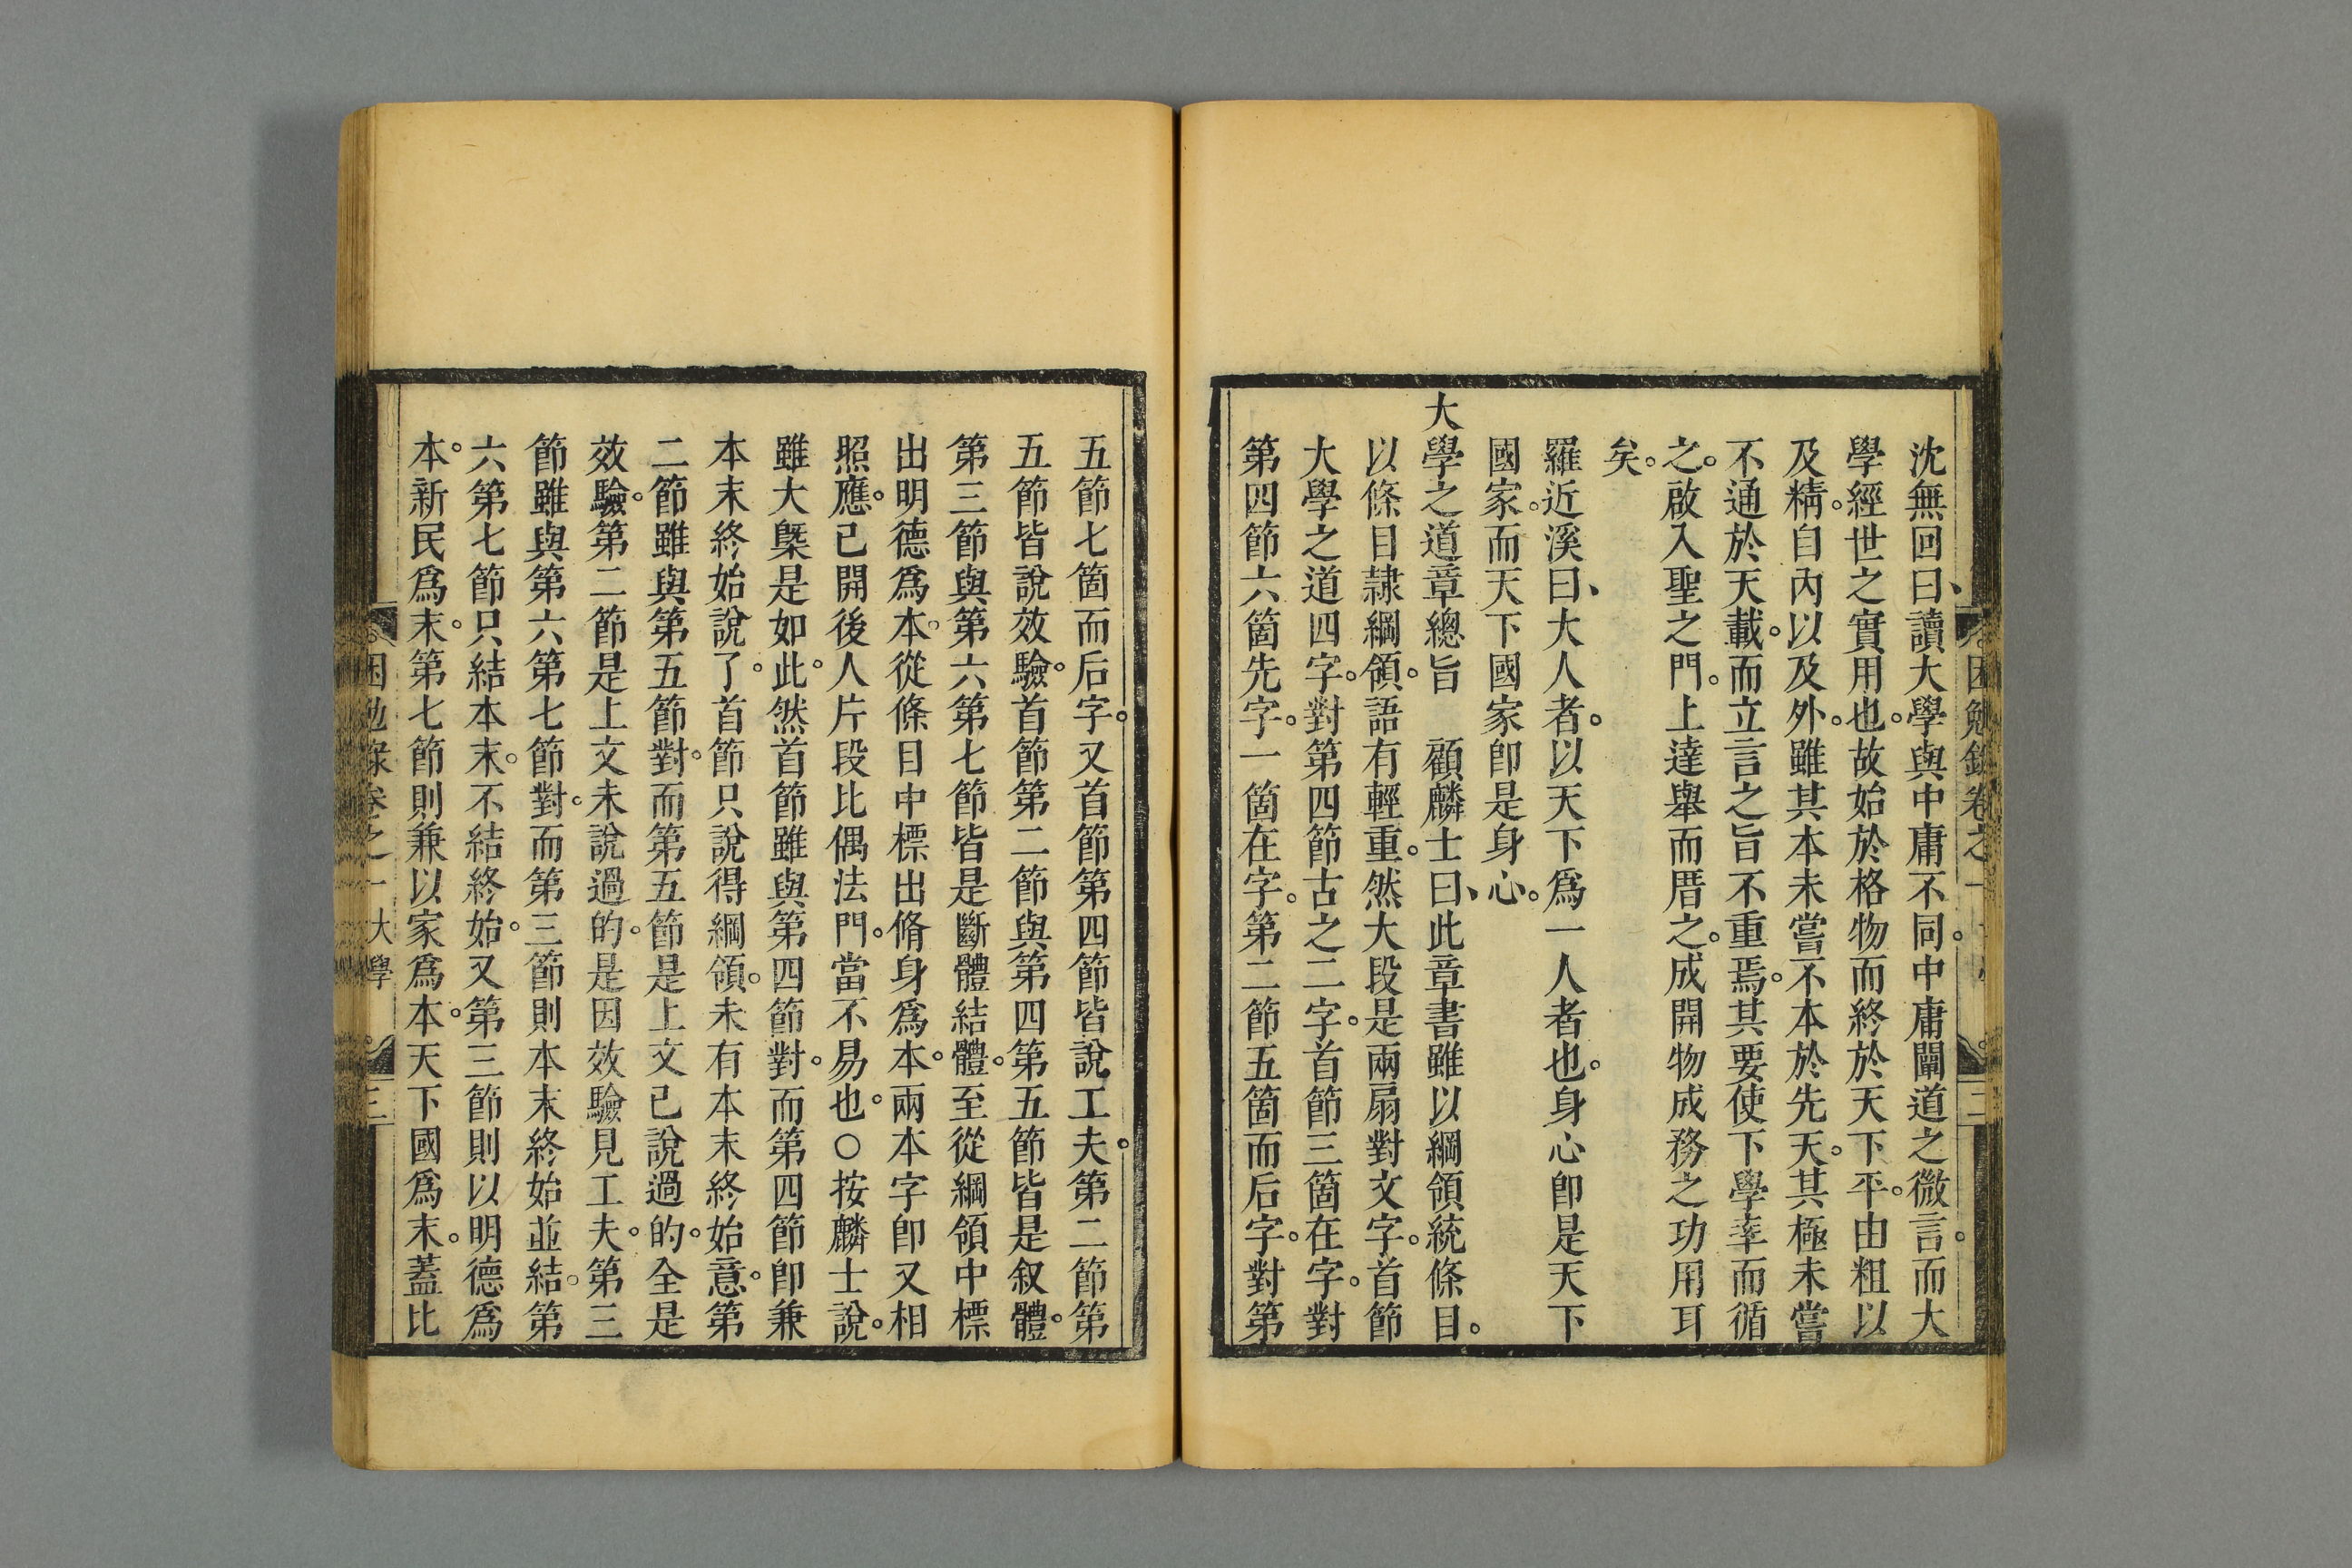 沈無回曰、讀大學與中庸不同。中庸闡道之微言。而大
學經世之實用也。故始於格物而終於天下平。由粗以
及精。自內以及外。雖其本未嘗不本於先天。其極未嘗
不通於天載。而立言之旨不重焉。其要使下學幸而循
之。啟入聖之門。上達舉而厝之。成開物成務之功用耳
矣。
羅近溪曰、大人者。以天下爲一人者也。身心卽是天下
國家。而天下國家卽是身心。
大學之道章總旨 顧麟士曰、此章書雖以綱領統條目。
以條目隷綱領。語有輕重。然大段是兩扇對文字。首節
大學之道四字。對第四節古之二字。首節三箇在字。對
第四節六箇先字。一箇在字。第二節五箇而后字。對第
五節七箇而后字。又首節第四節皆說工夫。第二節第
五節皆說效驗。首節第二節與第四第五節皆是叙體。
第三節與第六第七節皆是斷體結體。至從綱領中標
出明德爲本。從條目中標出脩身爲本。兩本字卽又相
照應。已開後人片段比偶法門。當不易也。○按麟士說。
雖大槩是如此。然首節雖與第四節對。而第四節卽兼
本末終始說了。首節只說得綱領。未有本末終始意。第
二節雖與第五節對。而第五節是上文已說過的。全是
效驗。第二節是上文未說過的。是因效驗見工夫。第三
節雖與第六第七節對。而第三節則本末終始並結。第
六第七節只結本末。不結終始。又第三節則以明德爲
本。新民爲末。第七節則兼以家爲本。天下國爲末。蓋比
困勉錄卷之一 大學 三